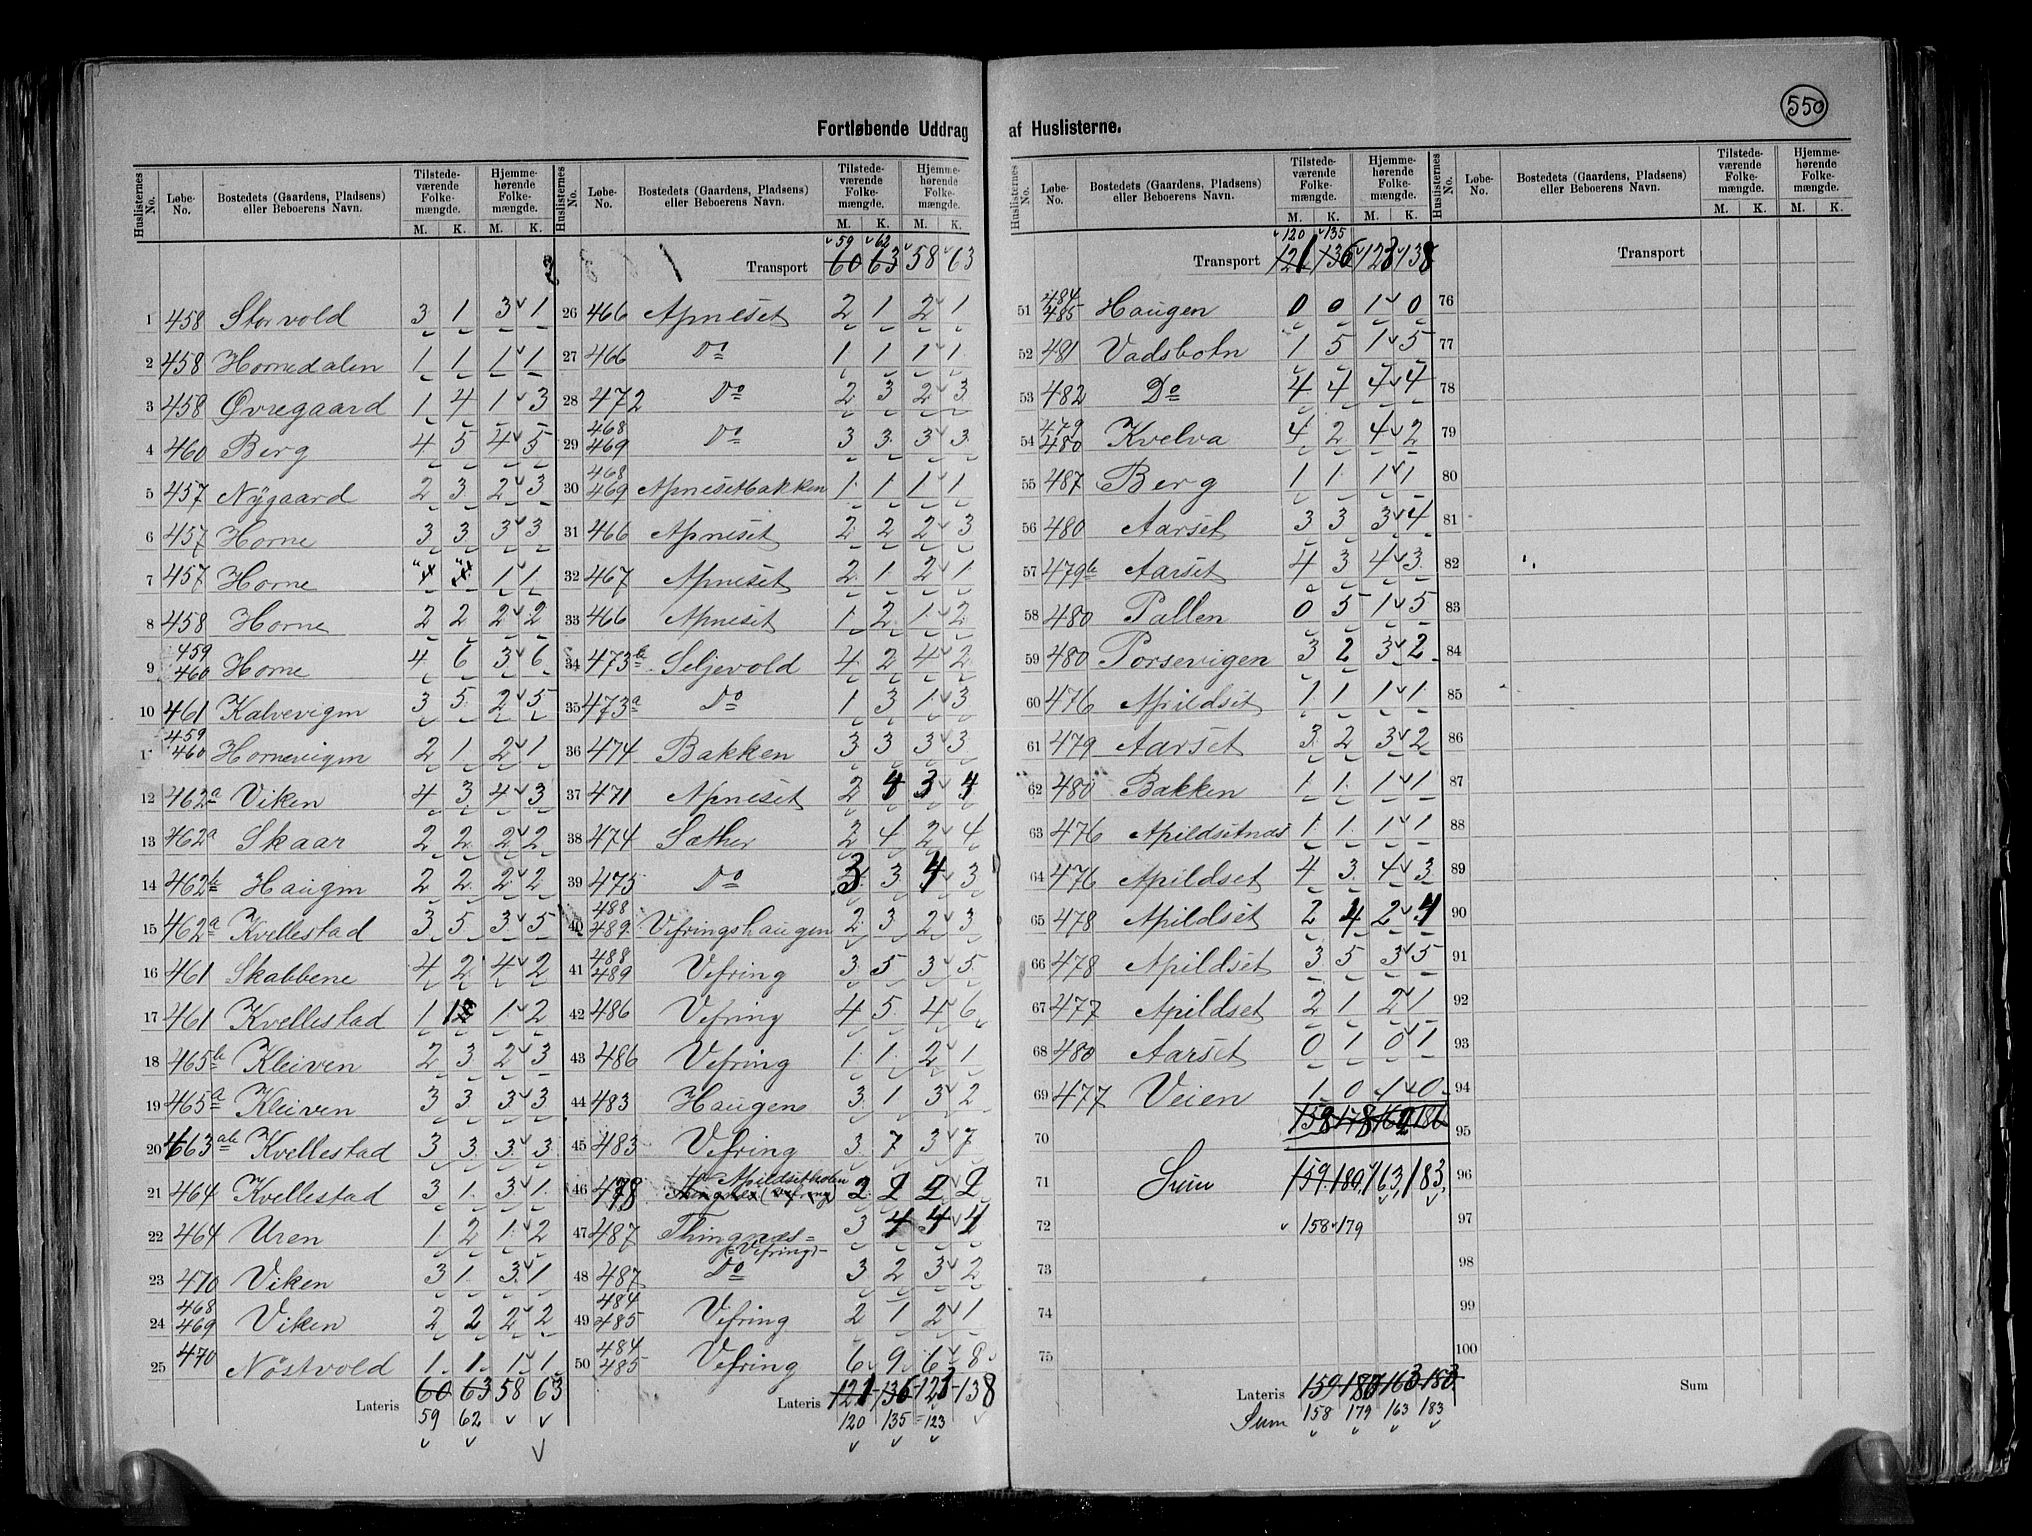 550
Fortløbende Uddrag af Huslisterne.
Huslisternes No. | Løbe-No. | Bostedets (Gaardens, Pladsens) eller Beboerens Navn. | Tilstedeværende Folkemængde. M. K. | Hjemmehørende Folkemængde. M. K.
1 458 Storvold 3 1 3 1
2 458 Hornedalen 1 1 1 1
3 458 Øvregaard 1 4 1 3
4 460 Berg 4 5 4 5
5 457 Nygaard 2 3 2 3
6 457 Horne 3 3 3 3
7 457 Horne 1 1
8 458 Horne 2 2 2 2
9 459 460 Horne 4 6 3 6
10 461 Kalvevigen 3 5 2 5
11 459 460 Hornevigen 2 1 2 1
12 462a Viken 4 3 4 3
13 462a Skaar 2 2 2 2
14 462b Haugen 2 2 2 2
15 462a Kvellestad 3 5 3 5
16 461 Skabbene 4 2 4 2
17 461 Kvellestad 1 1 1 2
18 465b Kleiven 2 3 2 3
19 465a Kleiven 3 3 3 3
20 463ab Kvellestad 3 3 3 3
21 464 Kvellestad 3 1 3 1
22 464 Uren 1 2 1 2
23 470 Viken 3 1 3 1
24 468 469 Viken 2 2 2 2
25 470 Nøstvold 1 1 1 1
Lateris 60 63 58 63
59 62
Transport 60 63 58 63
59 62
26 466 Apneset 2 1 2 1
27 466 Do 1 1 1 1
28 472 Do 2 3 2 3
29 468 469 Do 3 3 3 3
30 468 469 Apnesetbakken 1 1 1 1
31 466 Apneset 2 2 2 3
32 467 Apneset 2 1 2 1
33 466 Apneset 1 2 1 2
34 473b Seljevold 4 2 4 2
35 473a Do 1 3 1 3
36 474 Bakken 3 3 3 3
37 471 Apneset 2 4 3 4
38 474 Sæther 2 4 2 4
39 475 Do 3 3 4 3
40 488 489 Vefringshaugen 2 3 2 3
41 488 489 Vefring 3 5 3 5
42 486 Vefring 4 5 4 6
43 486 Vefring 1 1 2 1
44 483 Haugen 3 1 3 2
45 483 Vefring 3 7 3 7
46 478 Apildsetholen 2 2 2 2
47 487 Thingnæs (Vefring) 3 4 4 4
48 487 Do 3 2 3 2
49 484 485 Vefring 2 1 2 1
50 484 485 Vefring 6 9 6 8
Lateris 121 136 123 138
120 135 123
Transport 121 136 123 138
120 135
51 484 485 Haugen 0 0 1 0
52 481 Vadsbotn 1 5 1 5
53 482 Do 4 4 4 4
54 479 480 Kvelva 4 2 4 2
55 487 Berg 1 1 1 1
56 480 Aarset 3 3 3 4
57 479b Aarset 4 3 4 3
58 480 Pallen 0 5 1 5
59 480 Porsevigen 3 2 3 2
60 476 Apildset 1 1 1 1
61 479 Aarset 3 2 3 2
62 480 Bakken 1 1 1 1
63 476 Apildsetnæs 1 1 1 1
64 476 Apildset 4 3 4 3
65 478 Apildset 2 4 2 4
66 478 Apildset 3 5 3 5
67 477 Apildset 2 1 2 1
68 480 Aarset 0 1 0 1
69 477 Veien 1 0 1 0
158 178 162 186
70
71 Sum 159 180 163 183
72 158 179
73
74
75
Lateris 159 180 163 183
Sum 158 179 163 183
Transport
76
77
78
79
80
81
82
83
84
85
86
87
88
89
90
91
92
93
94
95
96
97
98
99
100
Sum